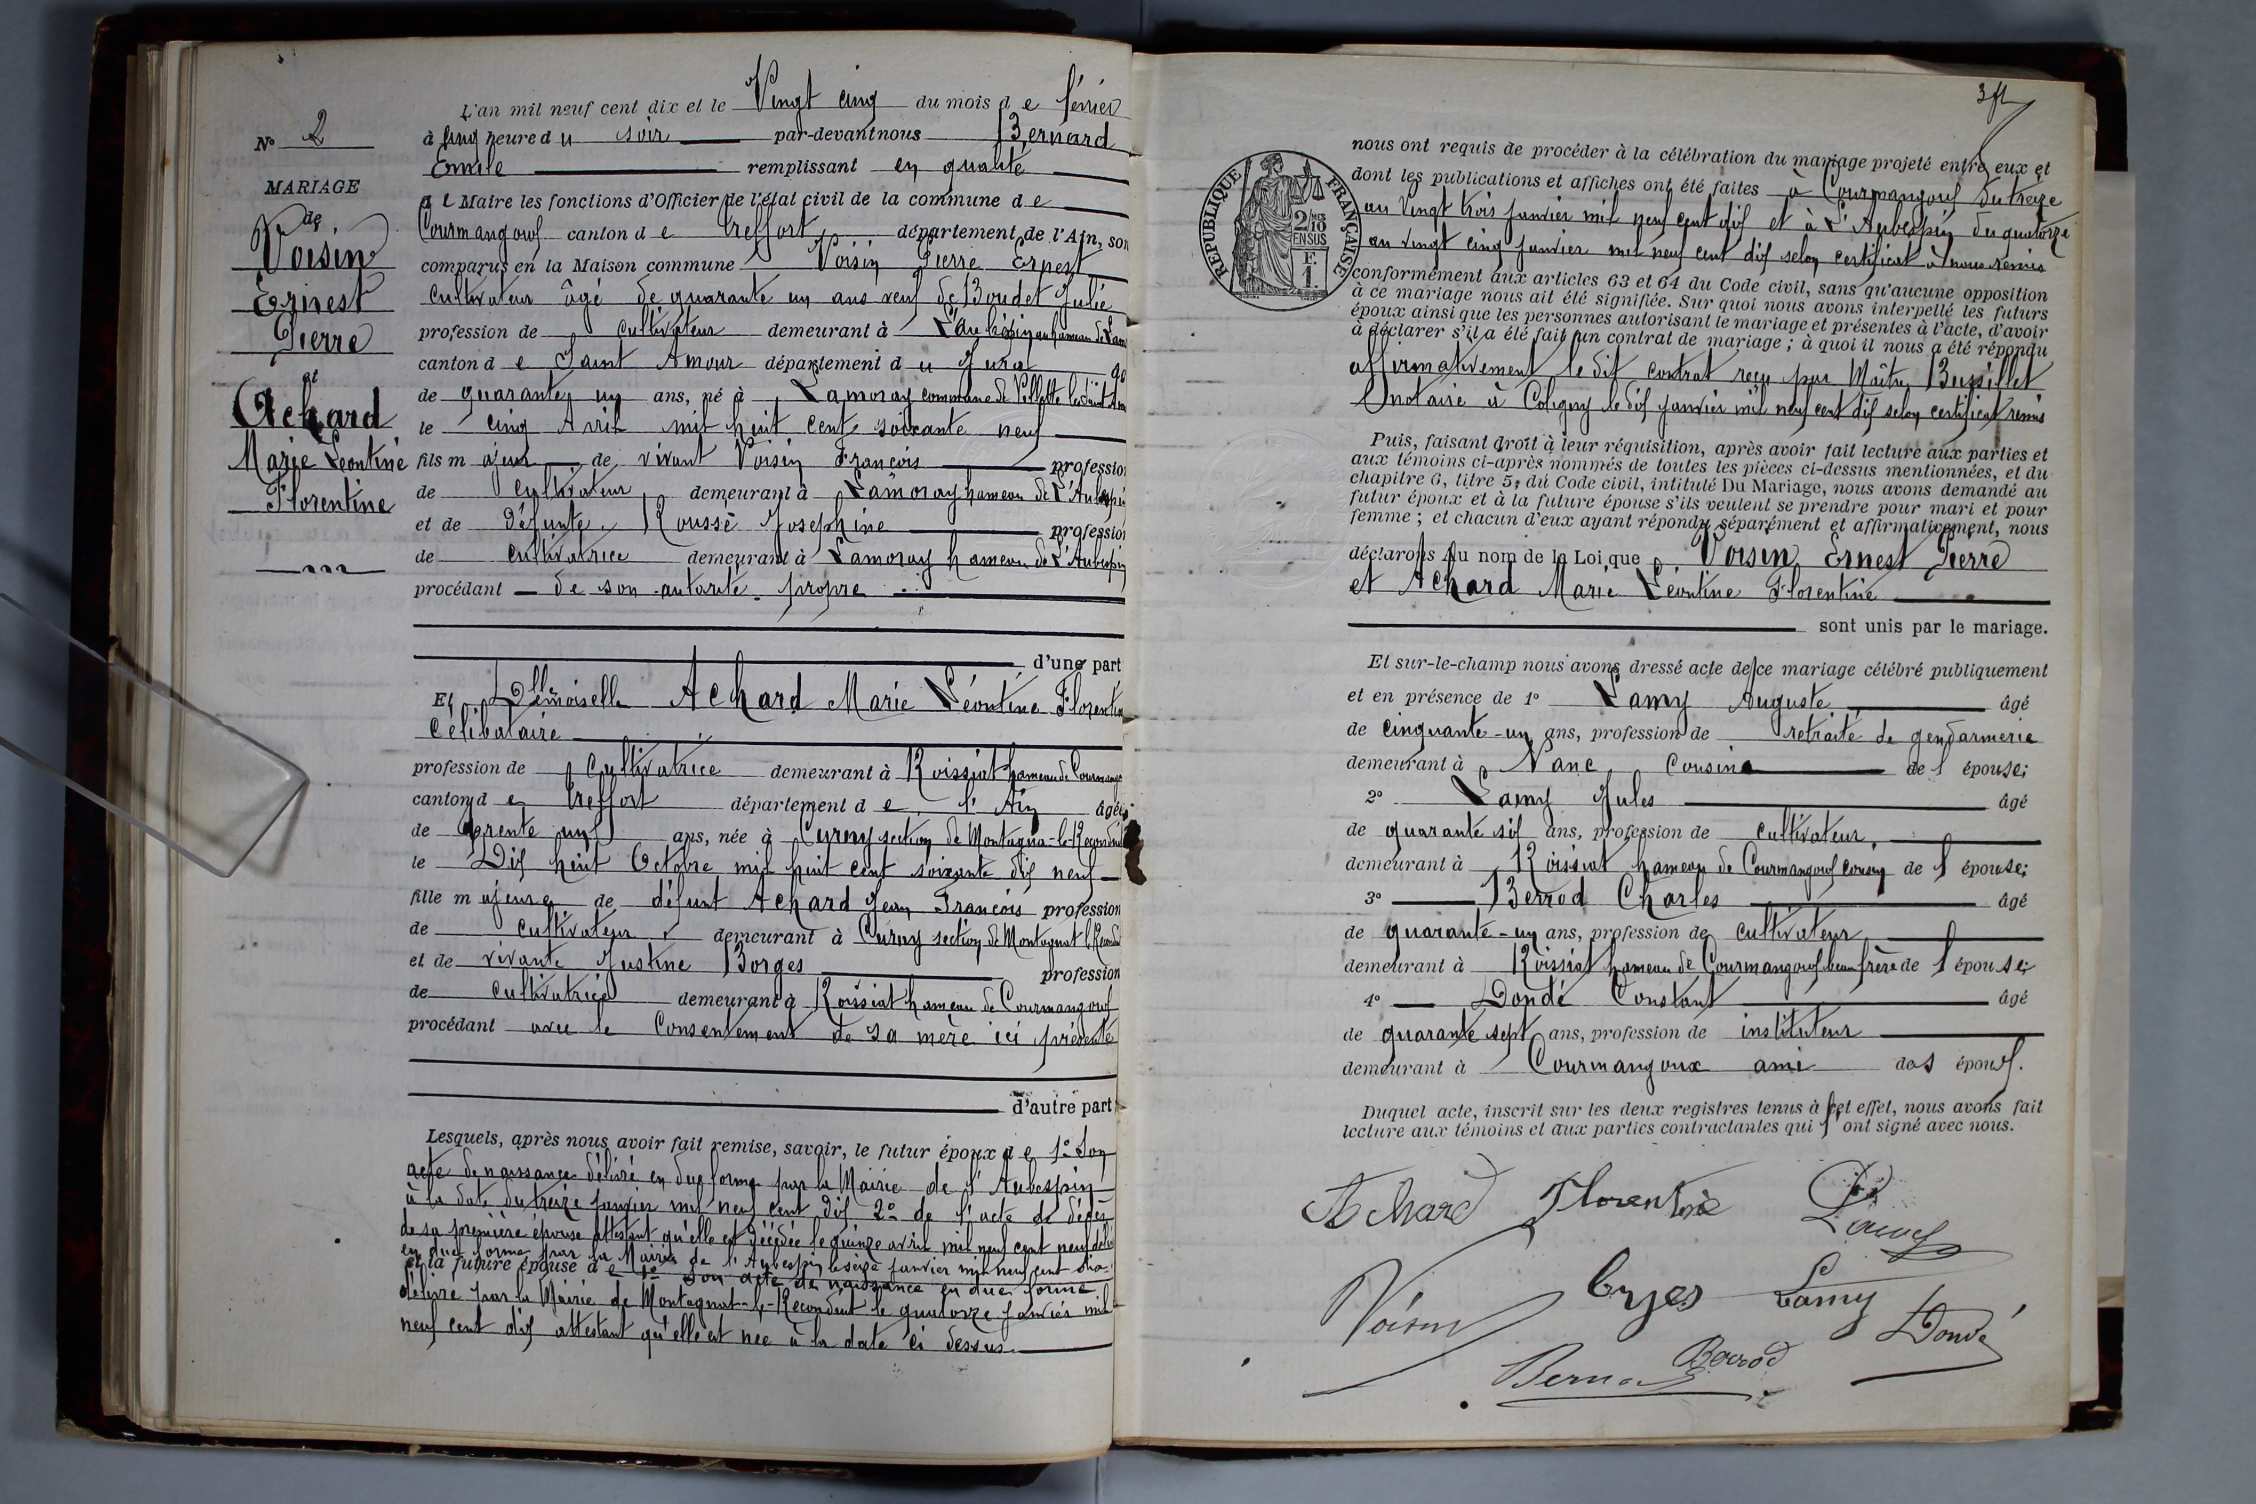 L'an mil neuf cent dix et le Vingt cinq du mois d e février
N° 2
à cinq heure d u soir par-devant nous Bernard
Emile remplissant en qualité
MARIAGE
d e Maire les fonctions d'Officier de l'état civil de la commune d e
de
Courmangoux canton d e Treffort département de l'Ain, son
Voisin
comparus en la Maison commune Voisin Pierre Ernest
Ernest
cultivateur âgé de quarante un ans veuf de Boudet Julie
Pierre
profession de cultivateur demeurant à L'Aubépin au hameau de Lam
canton d e Saint Amour département d u Jura
et
de quarante un ans, né à Lamoray commune de Villette les Saint Am
Achard
le cinq Avril mil huit cent soixante neuf
Marie Léontine
fils m ajeur de vivant Voisin François profession
Florentine
de cultivateur demeurant à Lamoray hameau de L'Aubespin
et de défunte Roussé Joséphine profession
de cultivatrice demeurant à Lamoray hameau de L'Aubespin
procédant de son autorité propre
d'une part
Et Demoiselle Achard Marie Léontine Florentine
Célibataire
profession de cultivatrice demeurant à Roissiat hameau de Courmango
canton d e Treffort département d e l'Ain âgée
de trente un ans, née à Curny section de Montagna-le-Recondui
le Dix huit Octobre mil huit cent soixante dix neuf
fille m ajeure de défunt Achard Jean François profession
de cultivateur demeurant à Curny section de Montagnat l Recondui
et de vivante Justine Borges profession
de cultivatrice demeurant à Roissiat hameau de Courmangoux
procédant avec le Consentement de sa mère ici présente
d'autre part
Lesquels, après nous avoir fait remise, savoir, le futur époux d e 1° Son
acte de naissance délivré en due forme par la Mairie de l'Aubespin
à la date du treize janvier mil neuf cent dix 2° de l'acte de décès
de sa première épouse attestant qu'elle est décédée le quinze avril mil neuf cent neuf délivré
en due forme par la Mairie de l'Aubespin le seize janvier mil neuf cent dix
et la future épouse d e 1° son acte de naissance en due forme
délivré par la Mairie de Montagnat-le-Reconduit le quatorze janvier mil
neuf cent dix attestant qu'elle est née à la date ci dessus.
nous ont requis de procéder à la célébration du mariage projeté entre eux et
dont les publications et affiches ont été faites à Courmangoux du treize
au vingt trois janvier mil neuf cent dix et à L'Aubespin du quatorze
au vingt cinq janvier mil neuf cent dix selon certificat à nous remis
RÉPUBLIQUE FRANÇAISE
2/10 EN SUS
F. 1.
conformément aux articles 63 et 64 du Code civil, sans qu'aucune opposition
à ce mariage nous ait été signifiée. Sur quoi nous avons interpellé les futurs
époux ainsi que les personnes autorisant le mariage et présentes à l'acte, d'avoir
à déclarer s'il a été fait un contrat de mariage ; à quoi il nous a été répondu
affirmativement le dit contrat reçu par Maître Bussillet
notaire à Coligny le dix janvier mil neuf cent dix selon certificat remis
Puis, faisant droit à leur réquisition, après avoir fait lecture aux parties et
aux témoins ci-après nommés de toutes les pièces ci-dessus mentionnées, et du
chapitre 6, titre 5, du Code civil, intitulé Du Mariage, nous avons demandé au
futur époux et à la future épouse s'ils veulent se prendre pour mari et pour
femme ; et chacun d'eux ayant répondu séparément et affirmativement, nous
déclarons Au nom de la Loi que Voisin Ernest Pierre
et Achard Marie Léontine Florentine
sont unis par le mariage.
Et sur-le-champ nous avons dressé acte de ce mariage célébré publiquement
et en présence de 1° Lamy Auguste âgé
de cinquante-un ans, profession de retraité de gendarmerie
demeurant à Nanc cousin de l épouse;
2° Lamy Jules âgé
de quarante six ans, profession de cultivateur
demeurant à Roissiat hameau de Courmangoux cousin de l épouse;
3° Berrod Charles âgé
de quarante-un ans, profession de cultivateur
demeurant à Roissiat hameau de Courmangoux beau frère de l épouse;
4° Dondé Constant âgé
de quarante sept ans, profession de instituteur
demeurant à Courmangoux ami des époux.
Duquel acte, inscrit sur les deux registres tenus à cet effet, nous avons fait
lecture aux témoins et aux parties contractantes qui ont signé avec nous.
Achard Florentine
Voisin Lamy Dondé
Bernard Berrod